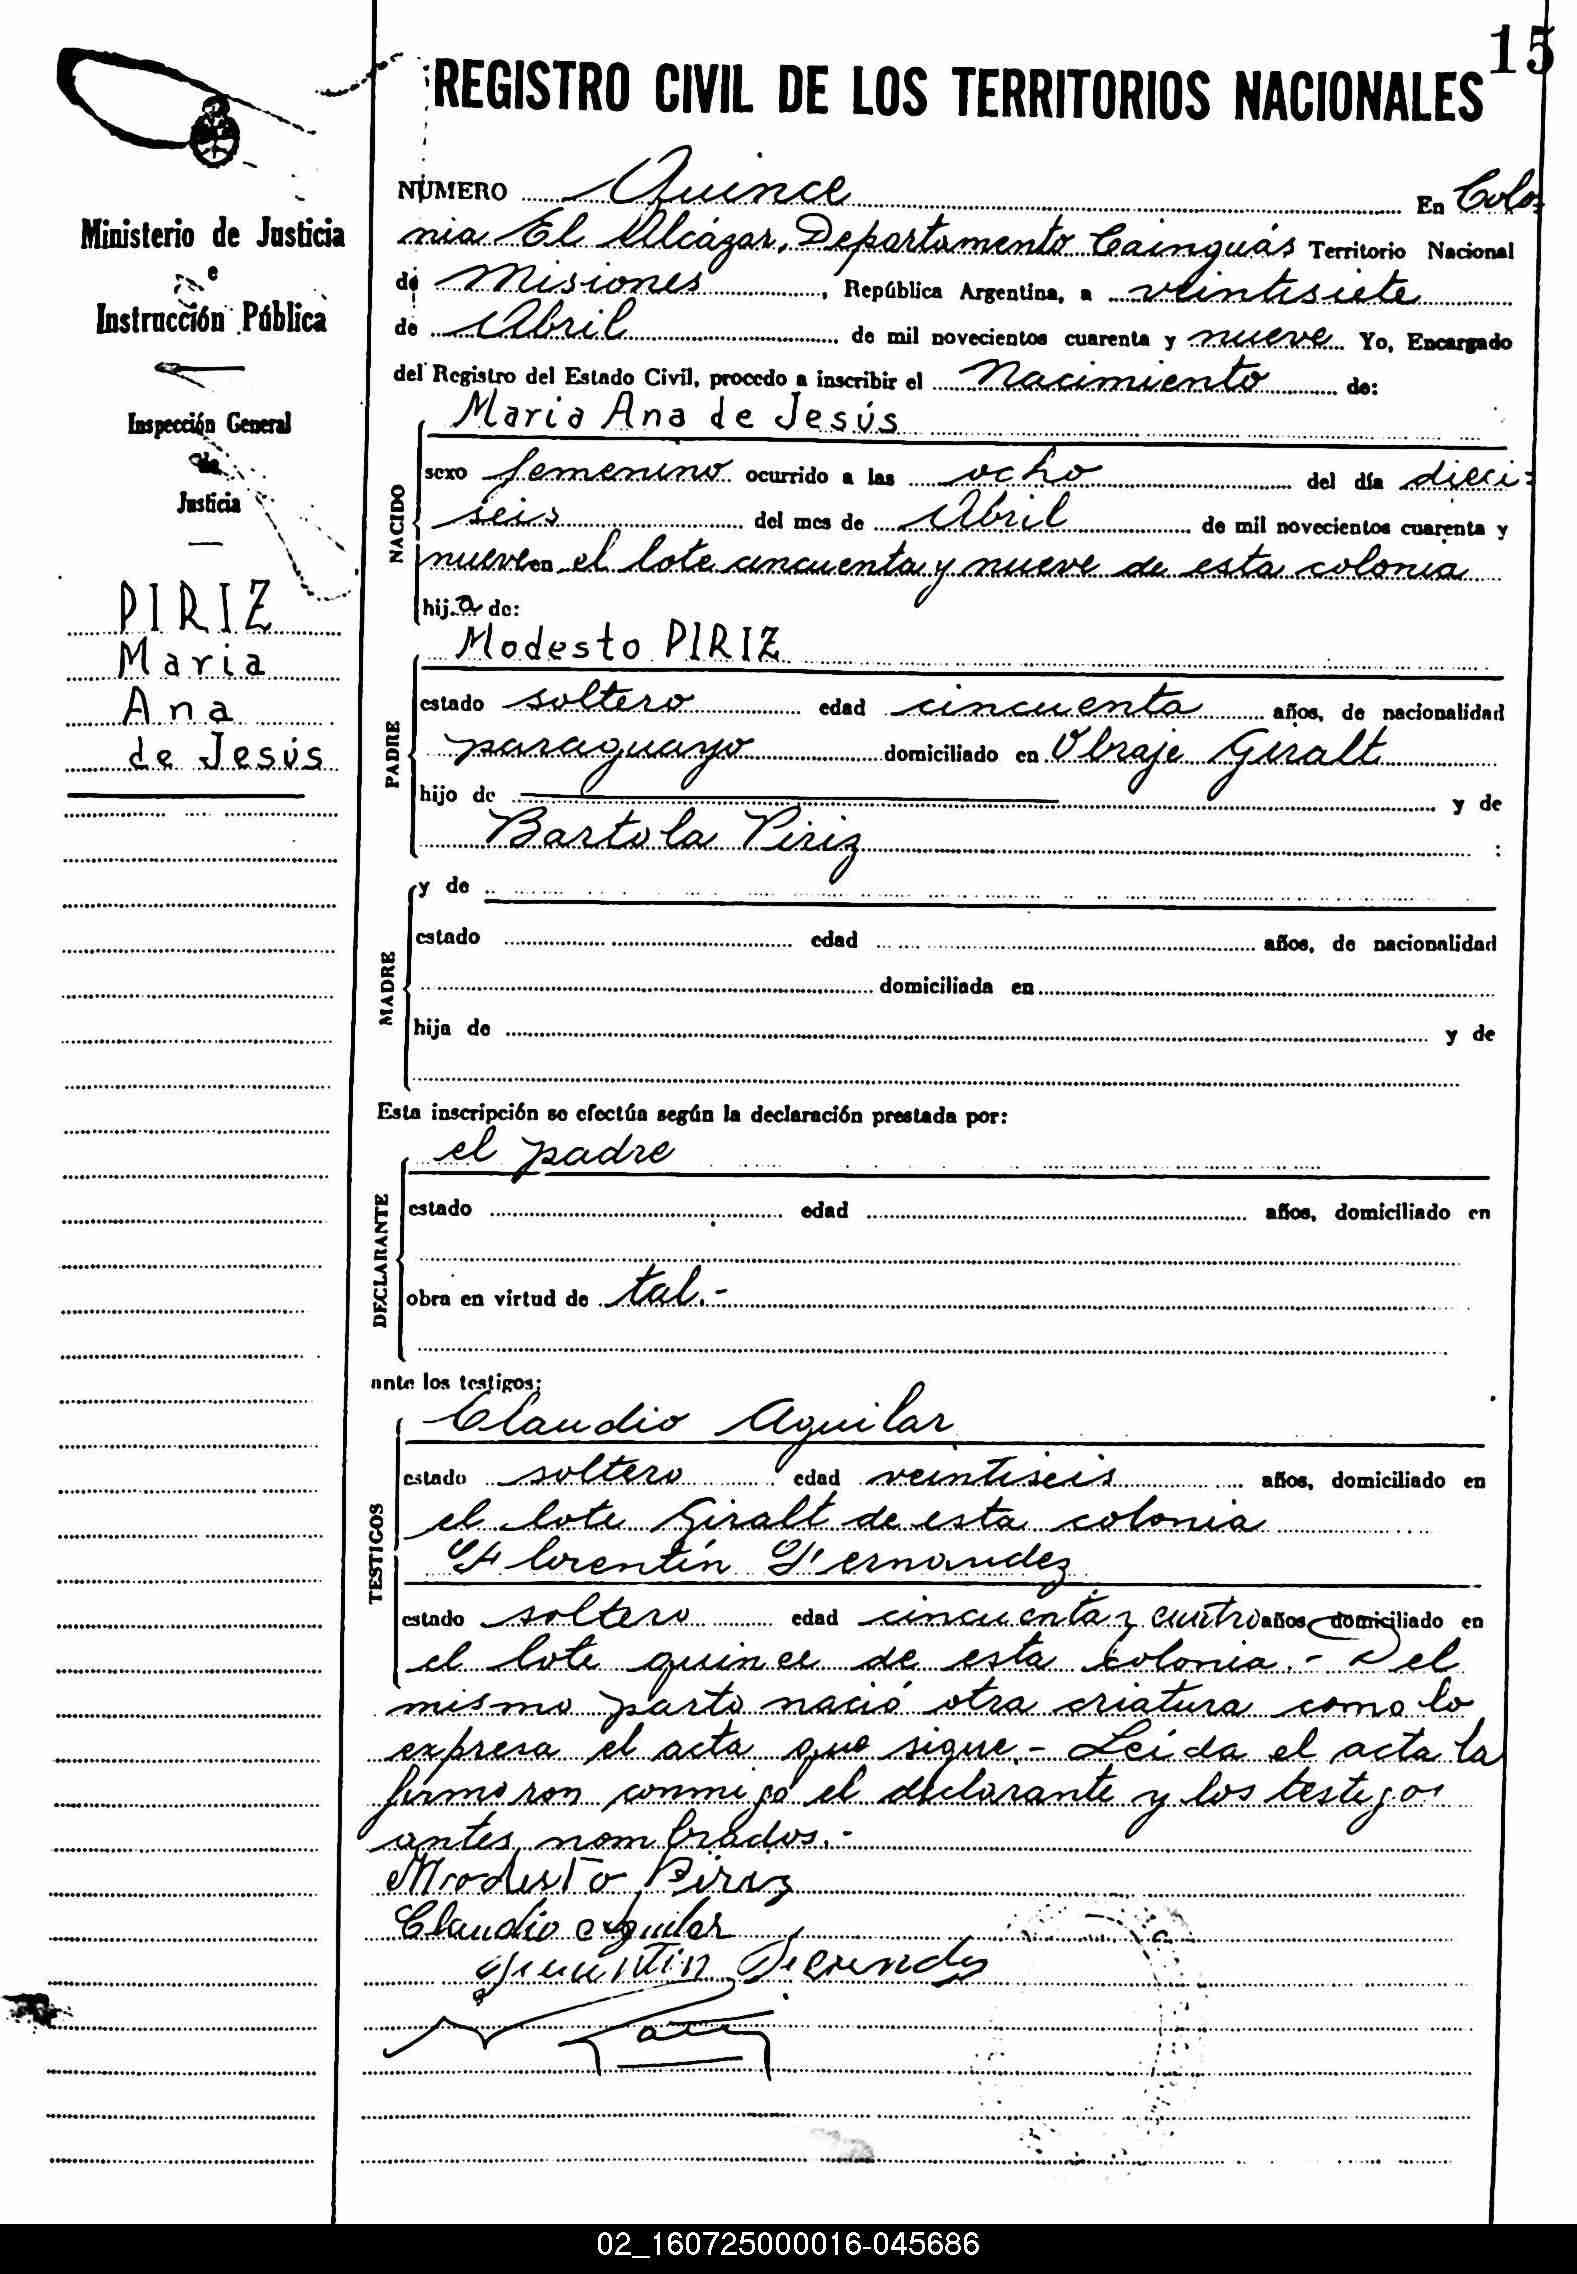 15
REGISTRO CIVIL DE LOS TERRITORIOS NACIONALES
Ministerio de Justicia
e
Instrucción Pública
Inspección General
de
Justicia
PIRIZ
Maria
Ana
de Jesús
NÚMERO Quince En Colo=
nia El Alcázar, Departamento Cainguás Territorio Nacional
de Misiones, República Argentina, a veintisiete
de Abril de mil novecientos cuarenta y nueve Yo, Encargado
del Registro del Estado Civil, procedo a inscribir el Nacimiento de:
Maria Ana de Jesús
NACIDO
sexo femenino ocurrido a las ocho del día dieci=
seis del mes de Abril de mil novecientos cuarenta y
nueve en el lote cincuenta y nueve de esta colonia
hija de:
Modesto PIRIZ
PADRE
estado soltero edad cincuenta años, de nacionalidad
paraguayo domiciliado en Obraje Giralt
hijo de y de
Bartola Piriz
MADRE
y de
estado edad años, de nacionalidad
domiciliada en
hija de y de
Esta inscripción se efectúa según la declaración prestada por:
el padre
DECLARANTE
estado edad años, domiciliado en
obra en virtud de tal.-
ante los testigos:
Claudio Aguilar
TESTIGOS
estado soltero edad veintiseis años, domiciliado en
el lote Giralt de esta colonia
Florentín Fernandez
estado soltero edad cincuenta y cuatro años, domiciliado en
el lote quince de esta colonia.- Del
mismo parto nació otra criatura como lo
expresa el acta que sigue.- Leida el acta la
firmaron conmigo el declarante y los testigos
antes nombrados.-
Modesto Piriz
Claudio Aguilar
02_160725000016-045686